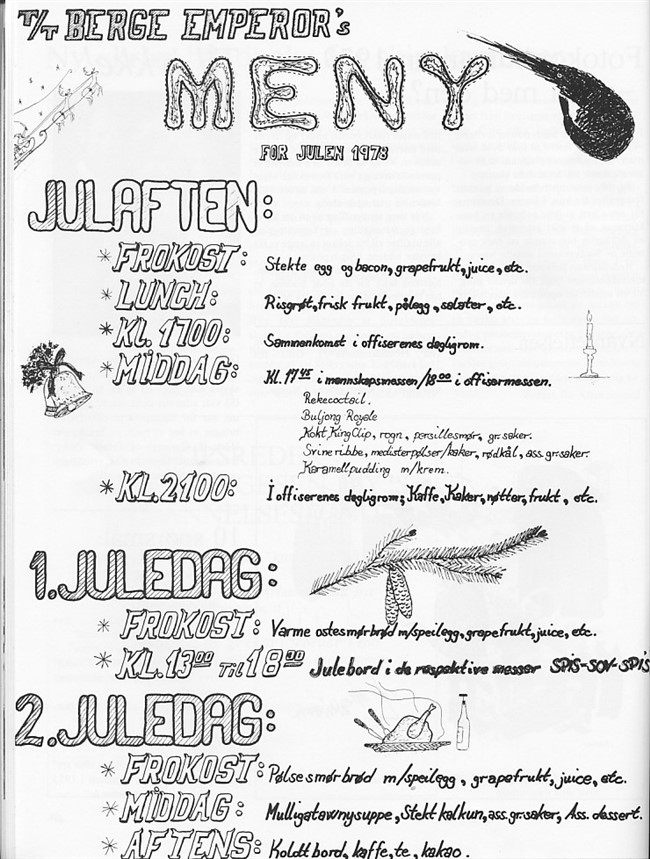 T/T BERGE EMPEROR's
MENY
FOR JULEN 1978
JULAFTEN:
* FROKOST: Stekte egg og bacon, grapefrukt, juice, etc.
* LUNCH: Risgrøt, frisk frukt, pålegg, salater, etc.
* KL. 1700: Samnenkomst i offiserenes dagligrom.
* MIDDAG: Kl. 17 45 i mennskapsmessen/18 00 i offisermessen.
Rekecoctail.
Buljong Royale
Kokt KingClip, rogn, persillesmør, gr.saker.
Svineribbe, medisterpølser/kaker, rødkål, ass.gr.saker.
Karamellpudding m/krem.
* KL. 2100: I offiserenes dagligrom; Kaffe, Kaker, nøtter, frukt, etc.
1. JULEDAG:
* FROKOST: Varme ostesmørbrød m/speilegg, grapefrukt, juice, etc.
* KL. 13 00 TIL 18 30 Julebord i de respektive messer SPIS-SOV-SPIS
2. JULEDAG:
* FROKOST: Pølsesmørbrød m/speilegg, grapefrukt, juice, etc.
* MIDDAG: Mulligatawnysuppe, Stekt kalkun, ass.gr.saker, Ass. dessert.
* AFTENS: Koldtbord, kaffe, te, kakao.